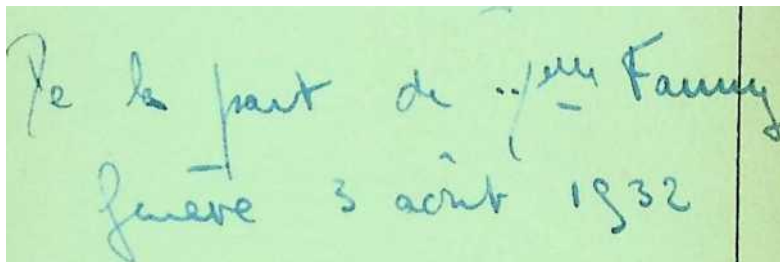 De la part de Melle Fanny
Genève 3 août 1932